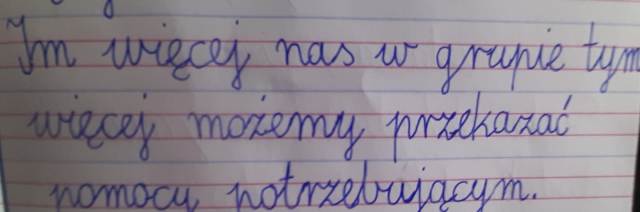 Im więcej nas w grupie tym
więcej możemy przekazać
pomocy potrzebującym.